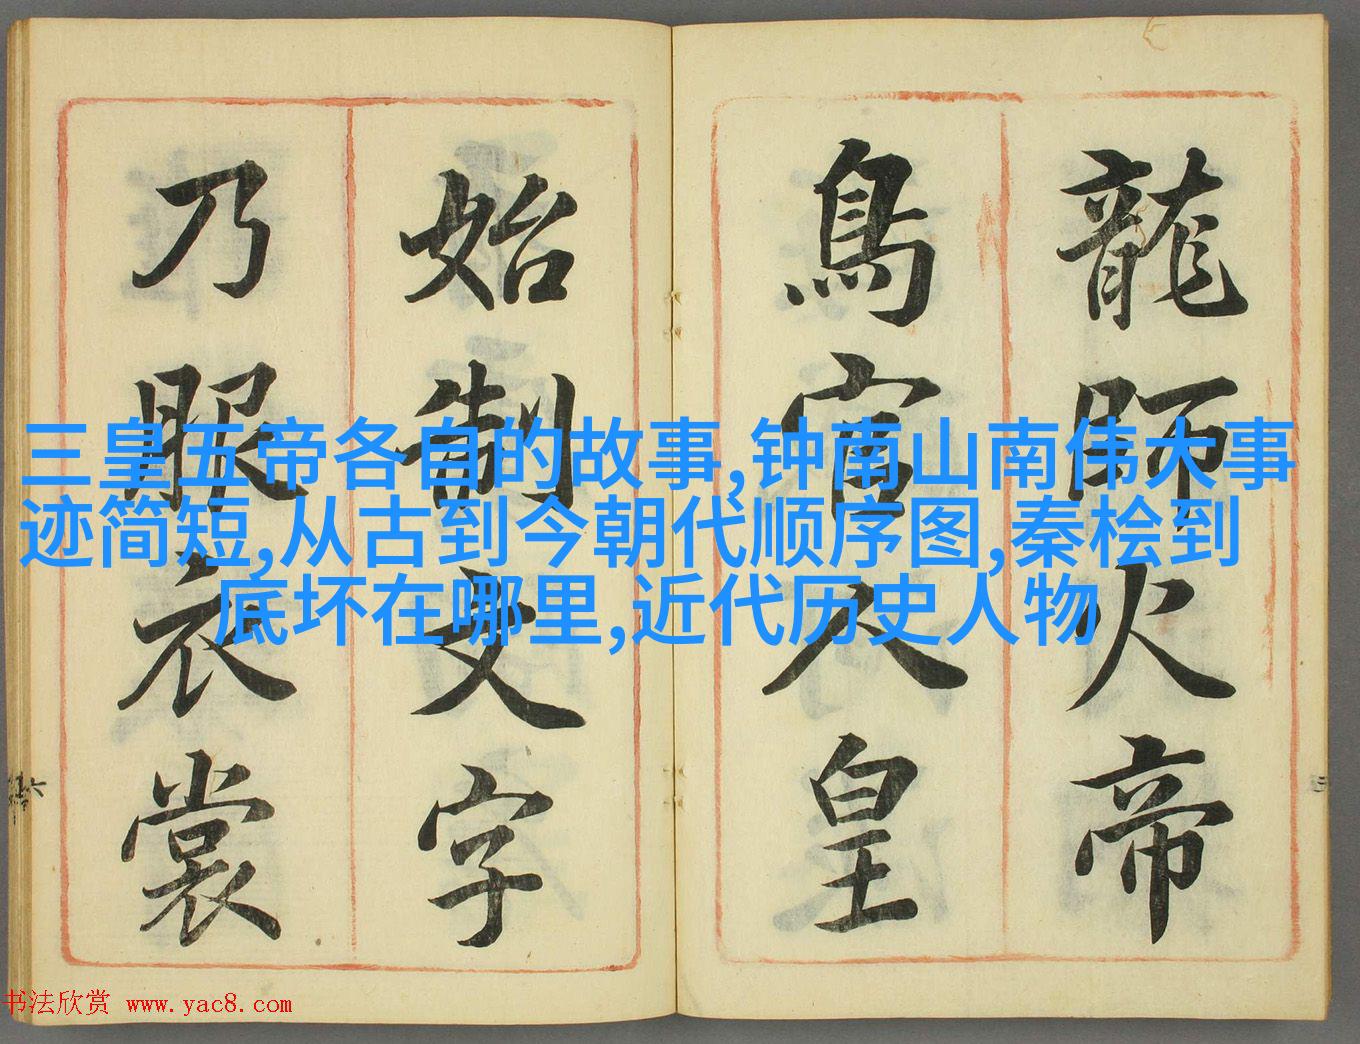 龍師火帝
鳥官人皇
始制文字
乃服衣裳
三皇五帝各自的故事,钟南山南伟大事
迹简短,从古到今朝代顺序图,秦桧到
底坏在哪里,近代历史人物
书法欣赏 www.yac8.com